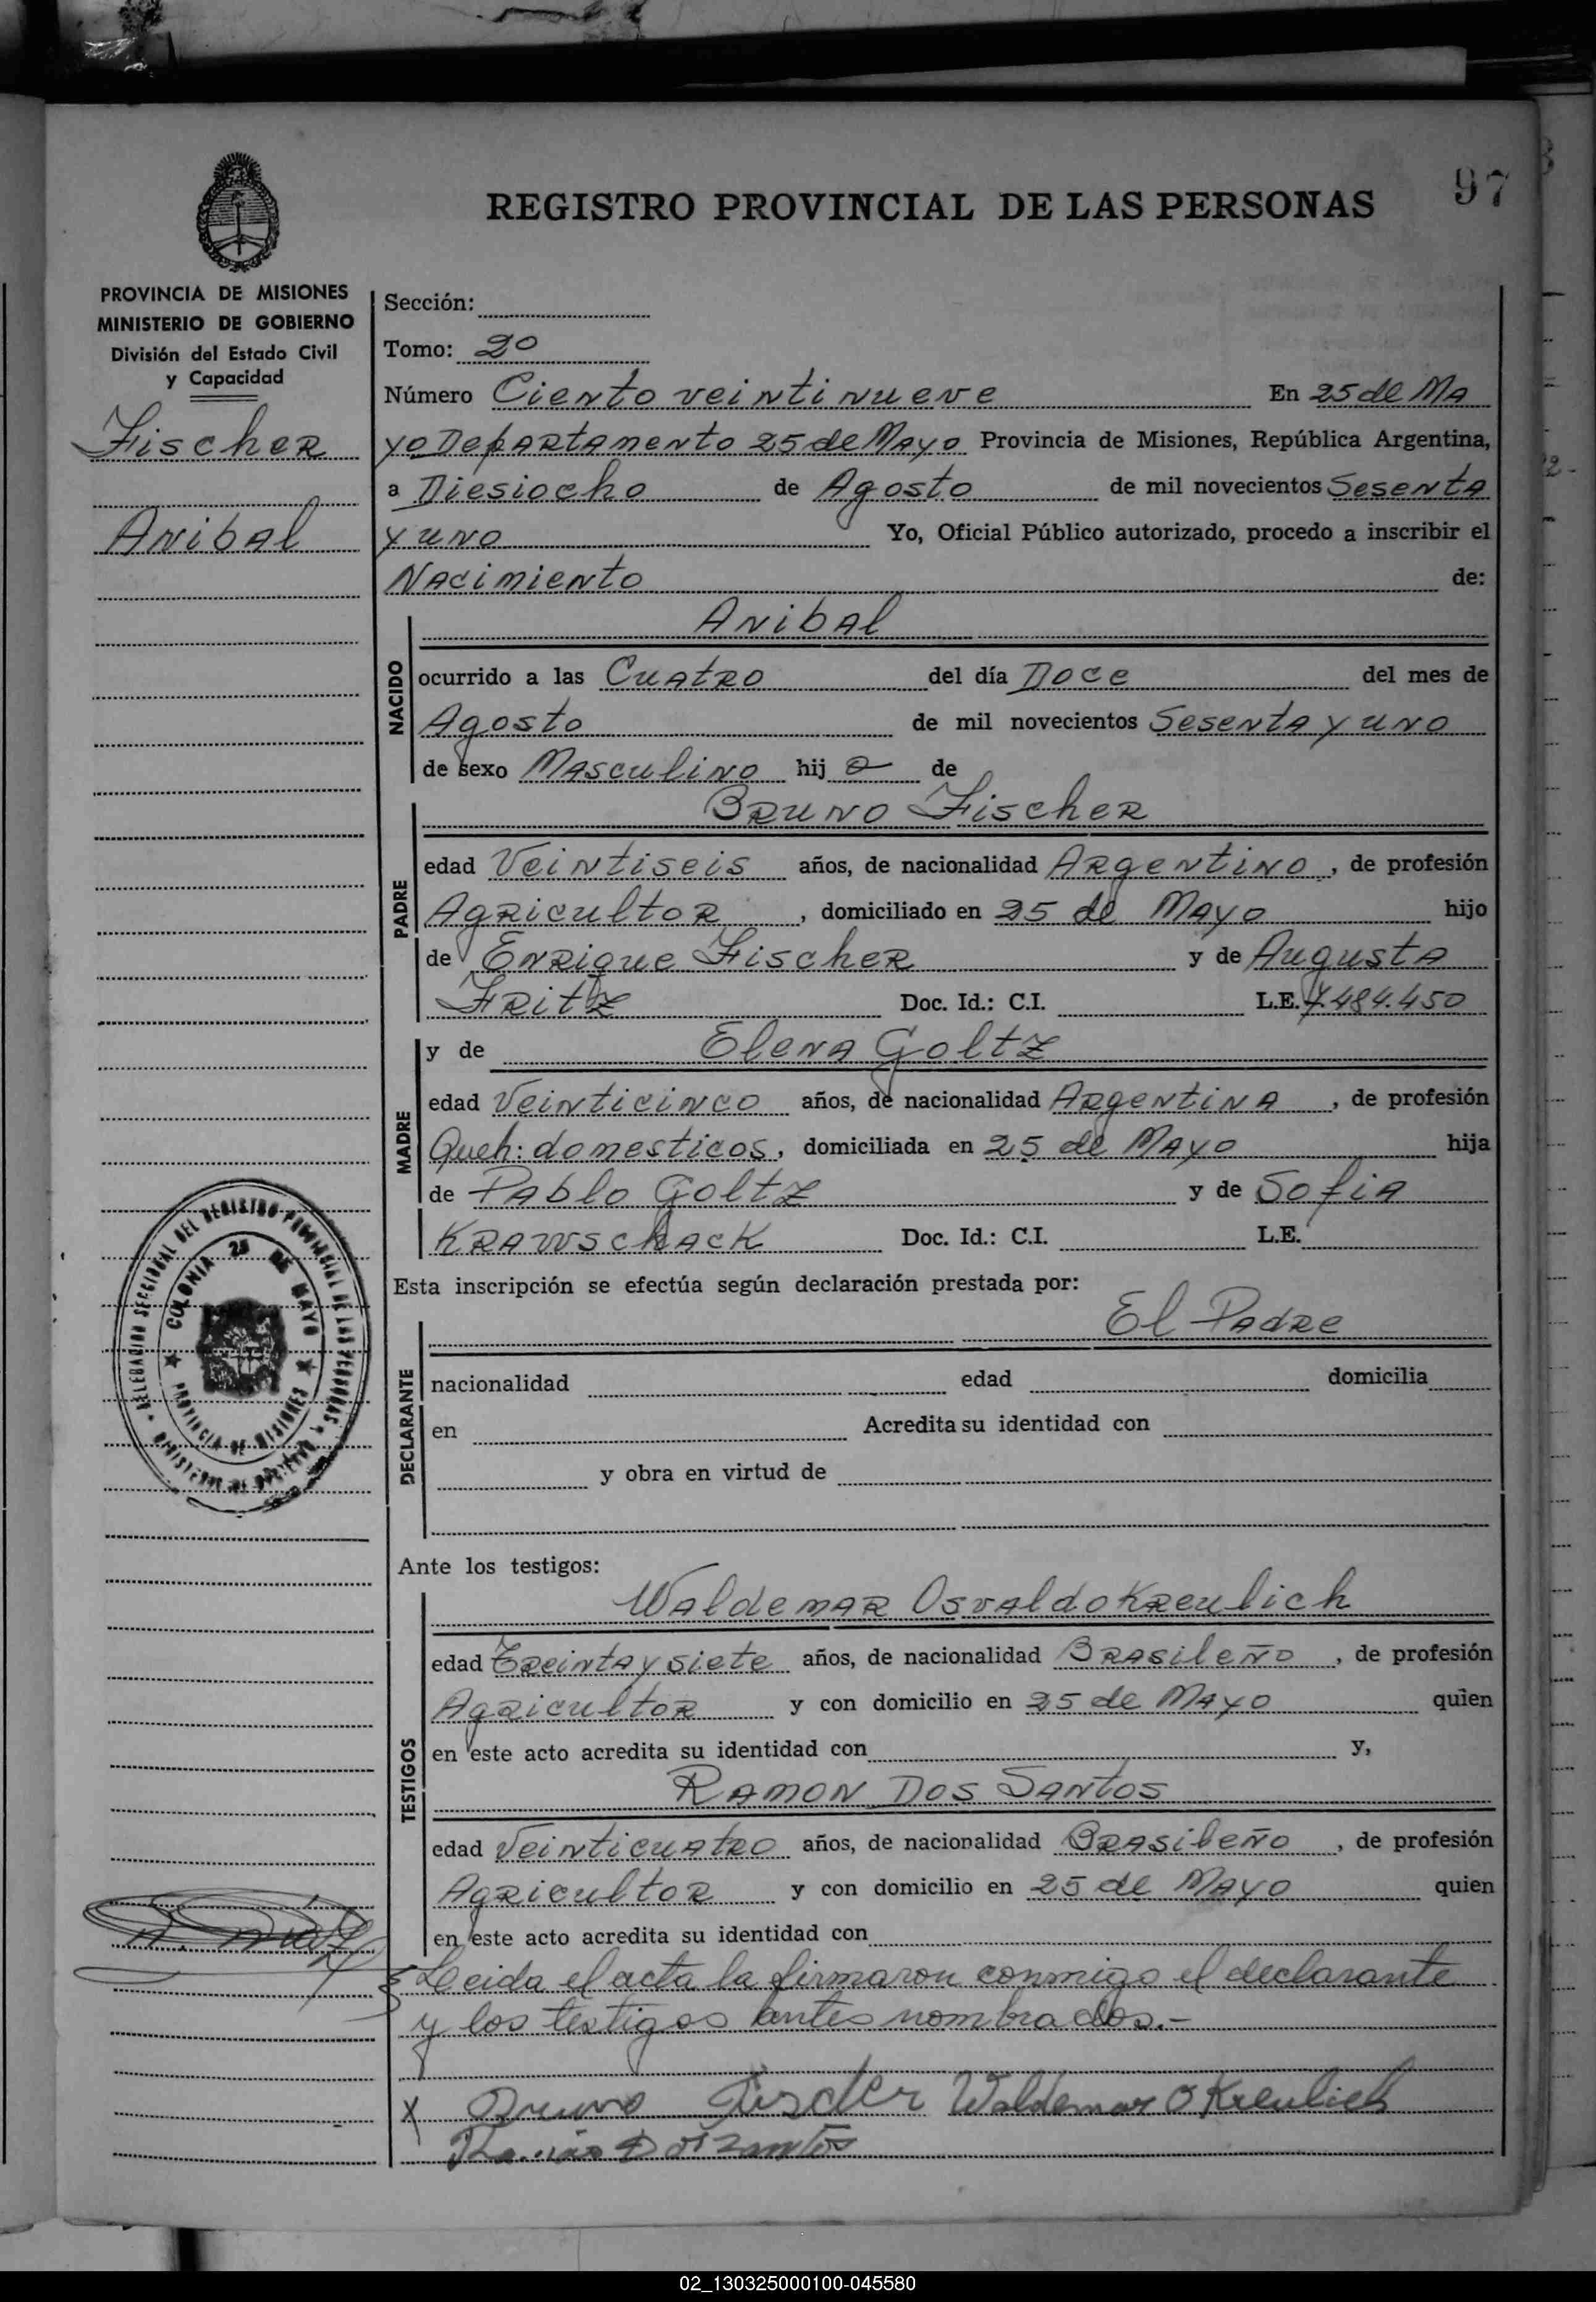 97
REGISTRO PROVINCIAL DE LAS PERSONAS
PROVINCIA DE MISIONES
MINISTERIO DE GOBIERNO
División del Estado Civil
y Capacidad
Fischer
Anibal
Sección:
Tomo: 2º
Número Ciento veintinueve En 25 de Ma
yo Departamento 25 de Mayo Provincia de Misiones, República Argentina,
a Diesiocho de Agosto de mil novecientos Sesenta
y uno Yo, Oficial Público autorizado, procedo a inscribir el
Nacimiento de:
NACIDO
Anibal
ocurrido a las Cuatro del día Doce del mes de
Agosto de mil novecientos Sesenta y uno
de sexo Masculino hij o de
PADRE
Bruno Fischer
edad Veintiseis años, de nacionalidad Argentino, de profesión
Agricultor, domiciliado en 25 de Mayo hijo
de Enrique Fischer y de Augusta
Fritz Doc. Id.: C.I. L.E. 7.484.450
MADRE
y de Elena Goltz
edad Veinticinco años, de nacionalidad Argentina, de profesión
Queh: domesticos, domiciliada en 25 de Mayo hija
de Pablo Goltz y de Sofia
Krawschack Doc. Id.: C.I. L.E.
Esta inscripción se efectúa según declaración prestada por:
DECLARANTE
El Padre
nacionalidad edad domicilia
en Acredita su identidad con
y obra en virtud de
DELEGACION SECCIONAL DEL REGISTRO PROVINCIAL DE LAS PERSONAS
MINISTERIO DE GOBIERNO
COLONIA 25 DE MAYO
PROVINCIA DE MISIONES
Ante los testigos:
TESTIGOS
Waldemar Osvaldo Kreulich
edad Treinta y siete años, de nacionalidad Brasileño, de profesión
Agricultor y con domicilio en 25 de Mayo quien
en este acto acredita su identidad con y,
Ramon Dos Santos
edad Veinticuatro años, de nacionalidad Brasileño, de profesión
Agricultor y con domicilio en 25 de Mayo quien
en este acto acredita su identidad con
Leida el acta la firmaron conmigo el declarante
y los testigos antes nombrados.-
X Bruno Fischer Waldemar O Kreulich
02_130325000100-045580